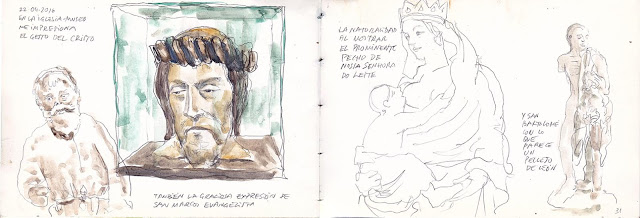 22-05-2016
EN LA IGLESIA-MUSEO
ME IMPRESIONA
EL GESTO DEL CRISTO
TAMBIÉN LA GRACIOSA EXPRESIÓN DE
SAN MARCO EVANGELISTA
LA NATURALIDAD
AL MOSTRAR
EL PROMINENTE
PECHO DE
NOSSA SENHORA
DO LEITE
Y SAN
BARTOLOMÉ
CON LO
QUE
PARECE
UN
PELLEJO
DE LEÓN
31